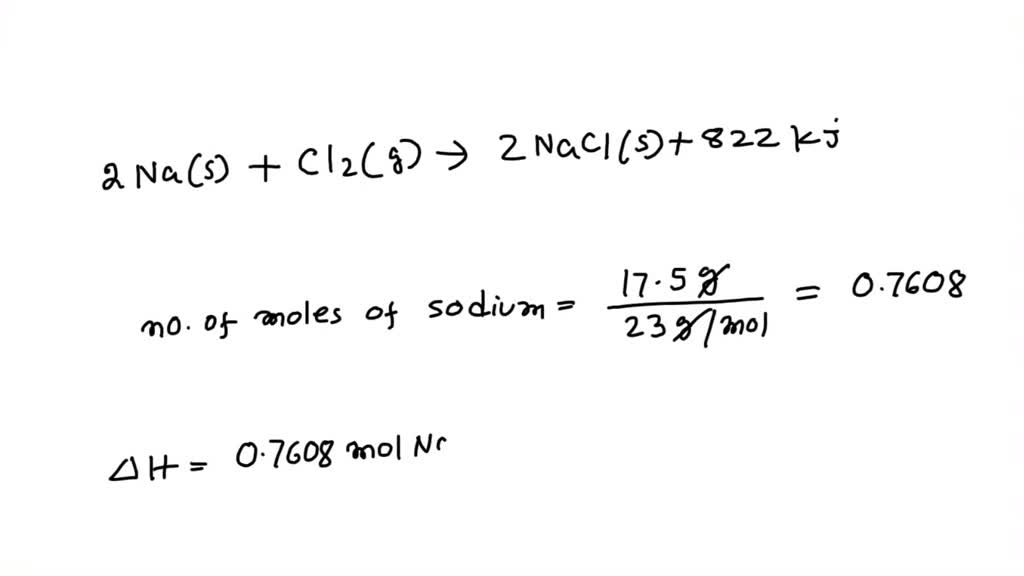 2 Na(s) + Cl2(g) → 2 NaCl(s) + 822 kj
no. of moles of sodium = 17.5 g / 23 g/mol = 0.7608
ΔH = 0.7608 mol